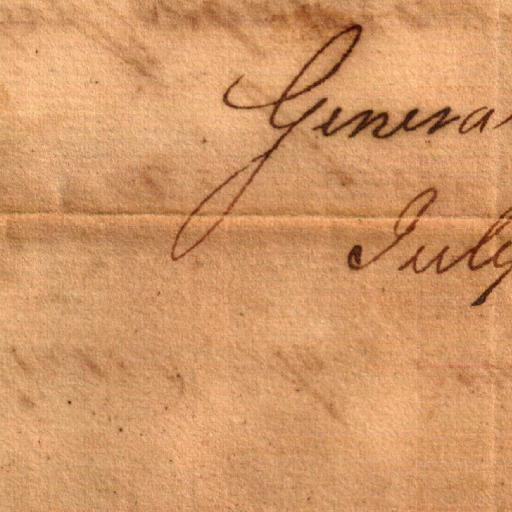 Genera
July